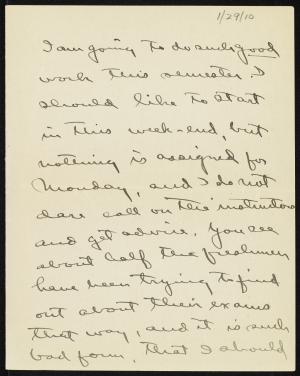 1/29/10
I am going to do such good
work this semester. I
should like to start
in this week-end, but
nothing is assigned for
Monday, and I do not
dare call on the instructors
and get advice. You see
about half the freshmen
have been trying to find
out about their exams
that way, and it is such
bad form, that I should